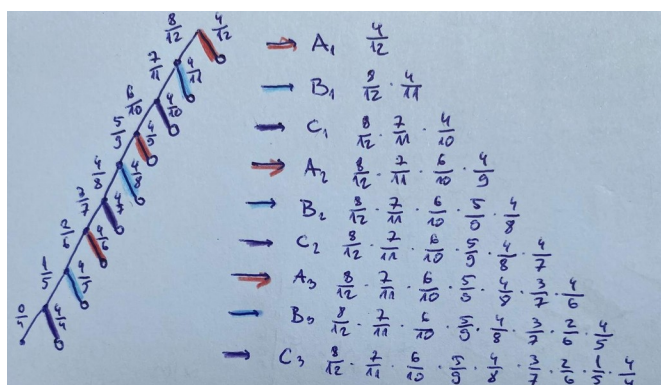 8/12 4/12
7/11 4/11
6/10 4/10
5/9 4/9
4/8 4/8
3/7 4/7
2/6 4/6
1/5 4/5
0/4 4/4
A1 4/12
B1 8/12 · 4/11
C1 8/12 · 7/11 · 4/10
A2 8/12 · 7/11 · 6/10 · 4/9
B2 8/12 · 7/11 · 6/10 · 5/9 · 4/8
C2 8/12 · 7/11 · 6/10 · 5/9 · 4/8 · 4/7
A3 8/12 · 7/11 · 6/10 · 5/9 · 4/9 · 3/7 · 4/6
B3 8/12 · 7/11 · 6/10 · 5/9 · 4/8 · 3/7 · 2/6 · 4/5
C3 8/12 · 7/11 · 6/10 · 5/9 · 4/8 · 3/7 · 2/6 · 1/5 · 4/4